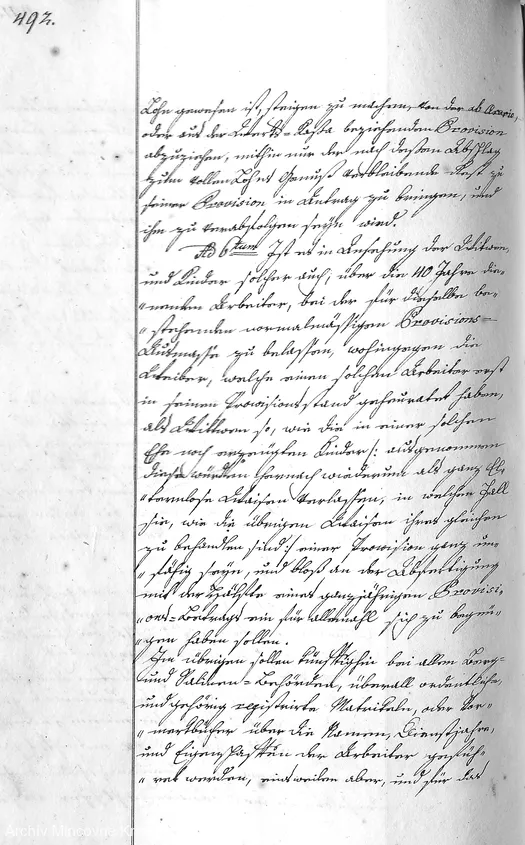 492.
Lohn gewesen ist, steigen zu machen, von der ab Aerario,
oder aus der Werks-Kassa beziehenden Provision
abzuziehen, mithin nur der nach dessen Abschlag
zum vollen Lohns Genuß verbleibende Rest zu
seiner Provision in Antrag zu bringen, und
ihm zu verabfolgen seyn wird.
Ad 6tum Ist es in Ansehung der Wittwen,
und Kinder solcher auch, über die 40 Jahre die-
"nenden Arbeiter, bei der für dieselbe be-
"stehenden normalmässigen Provisions-
Ausmasse zu belassen, wohingegen die
Weiber, welche einen solchen Arbeiter erst
in seinem Provisionsstand geheuratet haben,
als Wittwen so, wie die in einer solchen
Ehe noch erzeugten Kinder /: ausgenommen
diese würden hernach wiederum als ganz El-
"ternlose Waisen verlassen, in welchem Fall
sie, wie die übrigen Waisen ihres gleichen
zu behandlen sind :/ einer Provision ganz un-
"fähig seyn, und bloß an der Abfertigung
mit der Hälfte eines ganzjährigen Provisi-
"ons-Betrags ein für allemahl sich zu begnü-
"gen haben sollen.
Im übrigen sollen künftighin bei allen Berg-
und Salinen-Behörden, überall ordentliche,
und gehörig registrirte Matrikeln, oder Vor-
"merkbücher über die Namen, Dienstjahre,
und Eigenschaften der Arbeiter gefüh-
"ret werden, einsweilen aber, und für das
Archiv Mincovne Kr